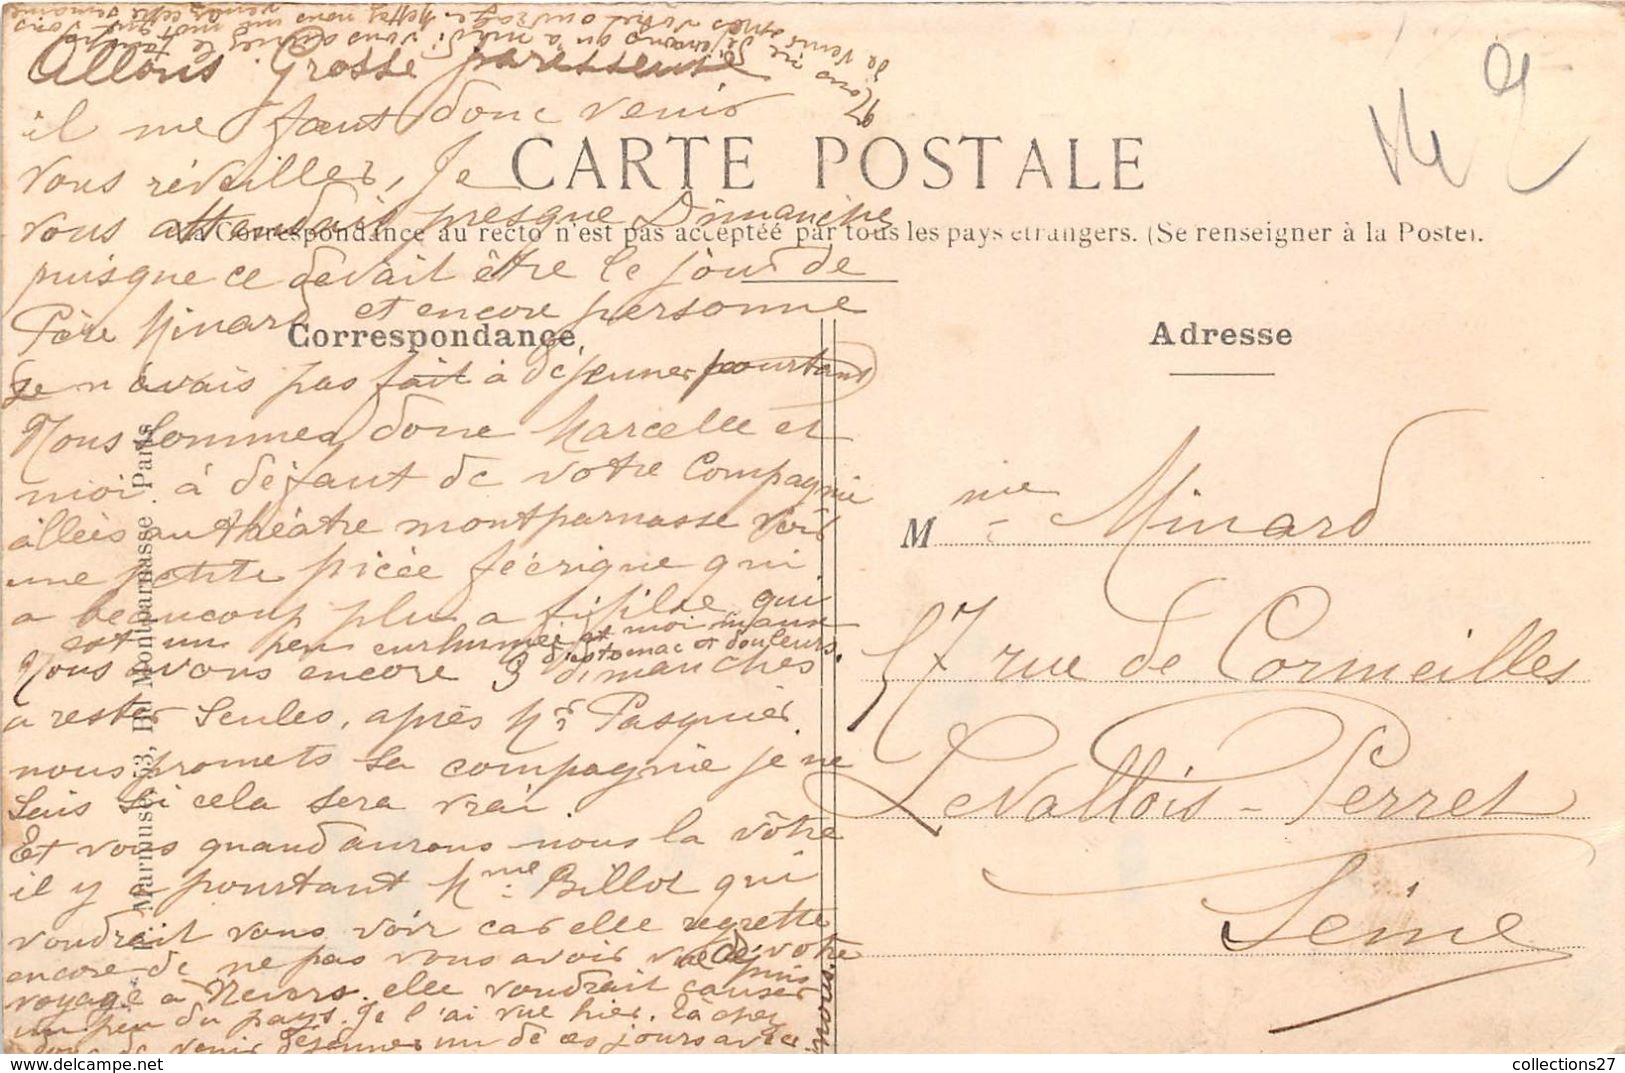 Allons Grosse paresseuse
il me faut donc venir
vous réveiller, Je
vous attendais presque Dimanche
puisque ce devait être le jour de
Père Minard et encore personne
Je n'avais pas fait à déjeuner pourtant
Nous sommes donc Marcelle et
moi à défaut de votre Compagnie
allées au théâtre montparnasse voir
une petite pièce féérique qui
a beaucoup plu a fifille qui
est un peu enrhumée et moi maux
d'estomac et douleurs.
Nous avons encore 3 dimanches
a rester seules, après Mr Pasquier
nous promets sa compagnie je ne
sais si cela sera vrai.
Et vous quand aurons nous la vôtre
il y a pourtant Mme Billot qui
voudrait vous voir car elle regrette
encore de ne pas vous avoir vue depuis votre
voyage à Nevers. elle voudrait causer
un peu du pays. Je l'ai vue hier. Tâchez
donc de venir déjeuner un de ces jours avec
nous.
Nous ne
qu'a midi vous
votre ouvrage. mettez nous un mot
venez cette semaine
CARTE POSTALE
La Correspondance au recto n'est pas acceptée par tous les pays étrangers. (Se renseigner à la Poste).
Correspondance
Adresse
Marmuse, 53, Bd Montparnasse. Paris
Mme Minard
57 rue de Cormeilles
Levallois-Perret
Seine
collections27